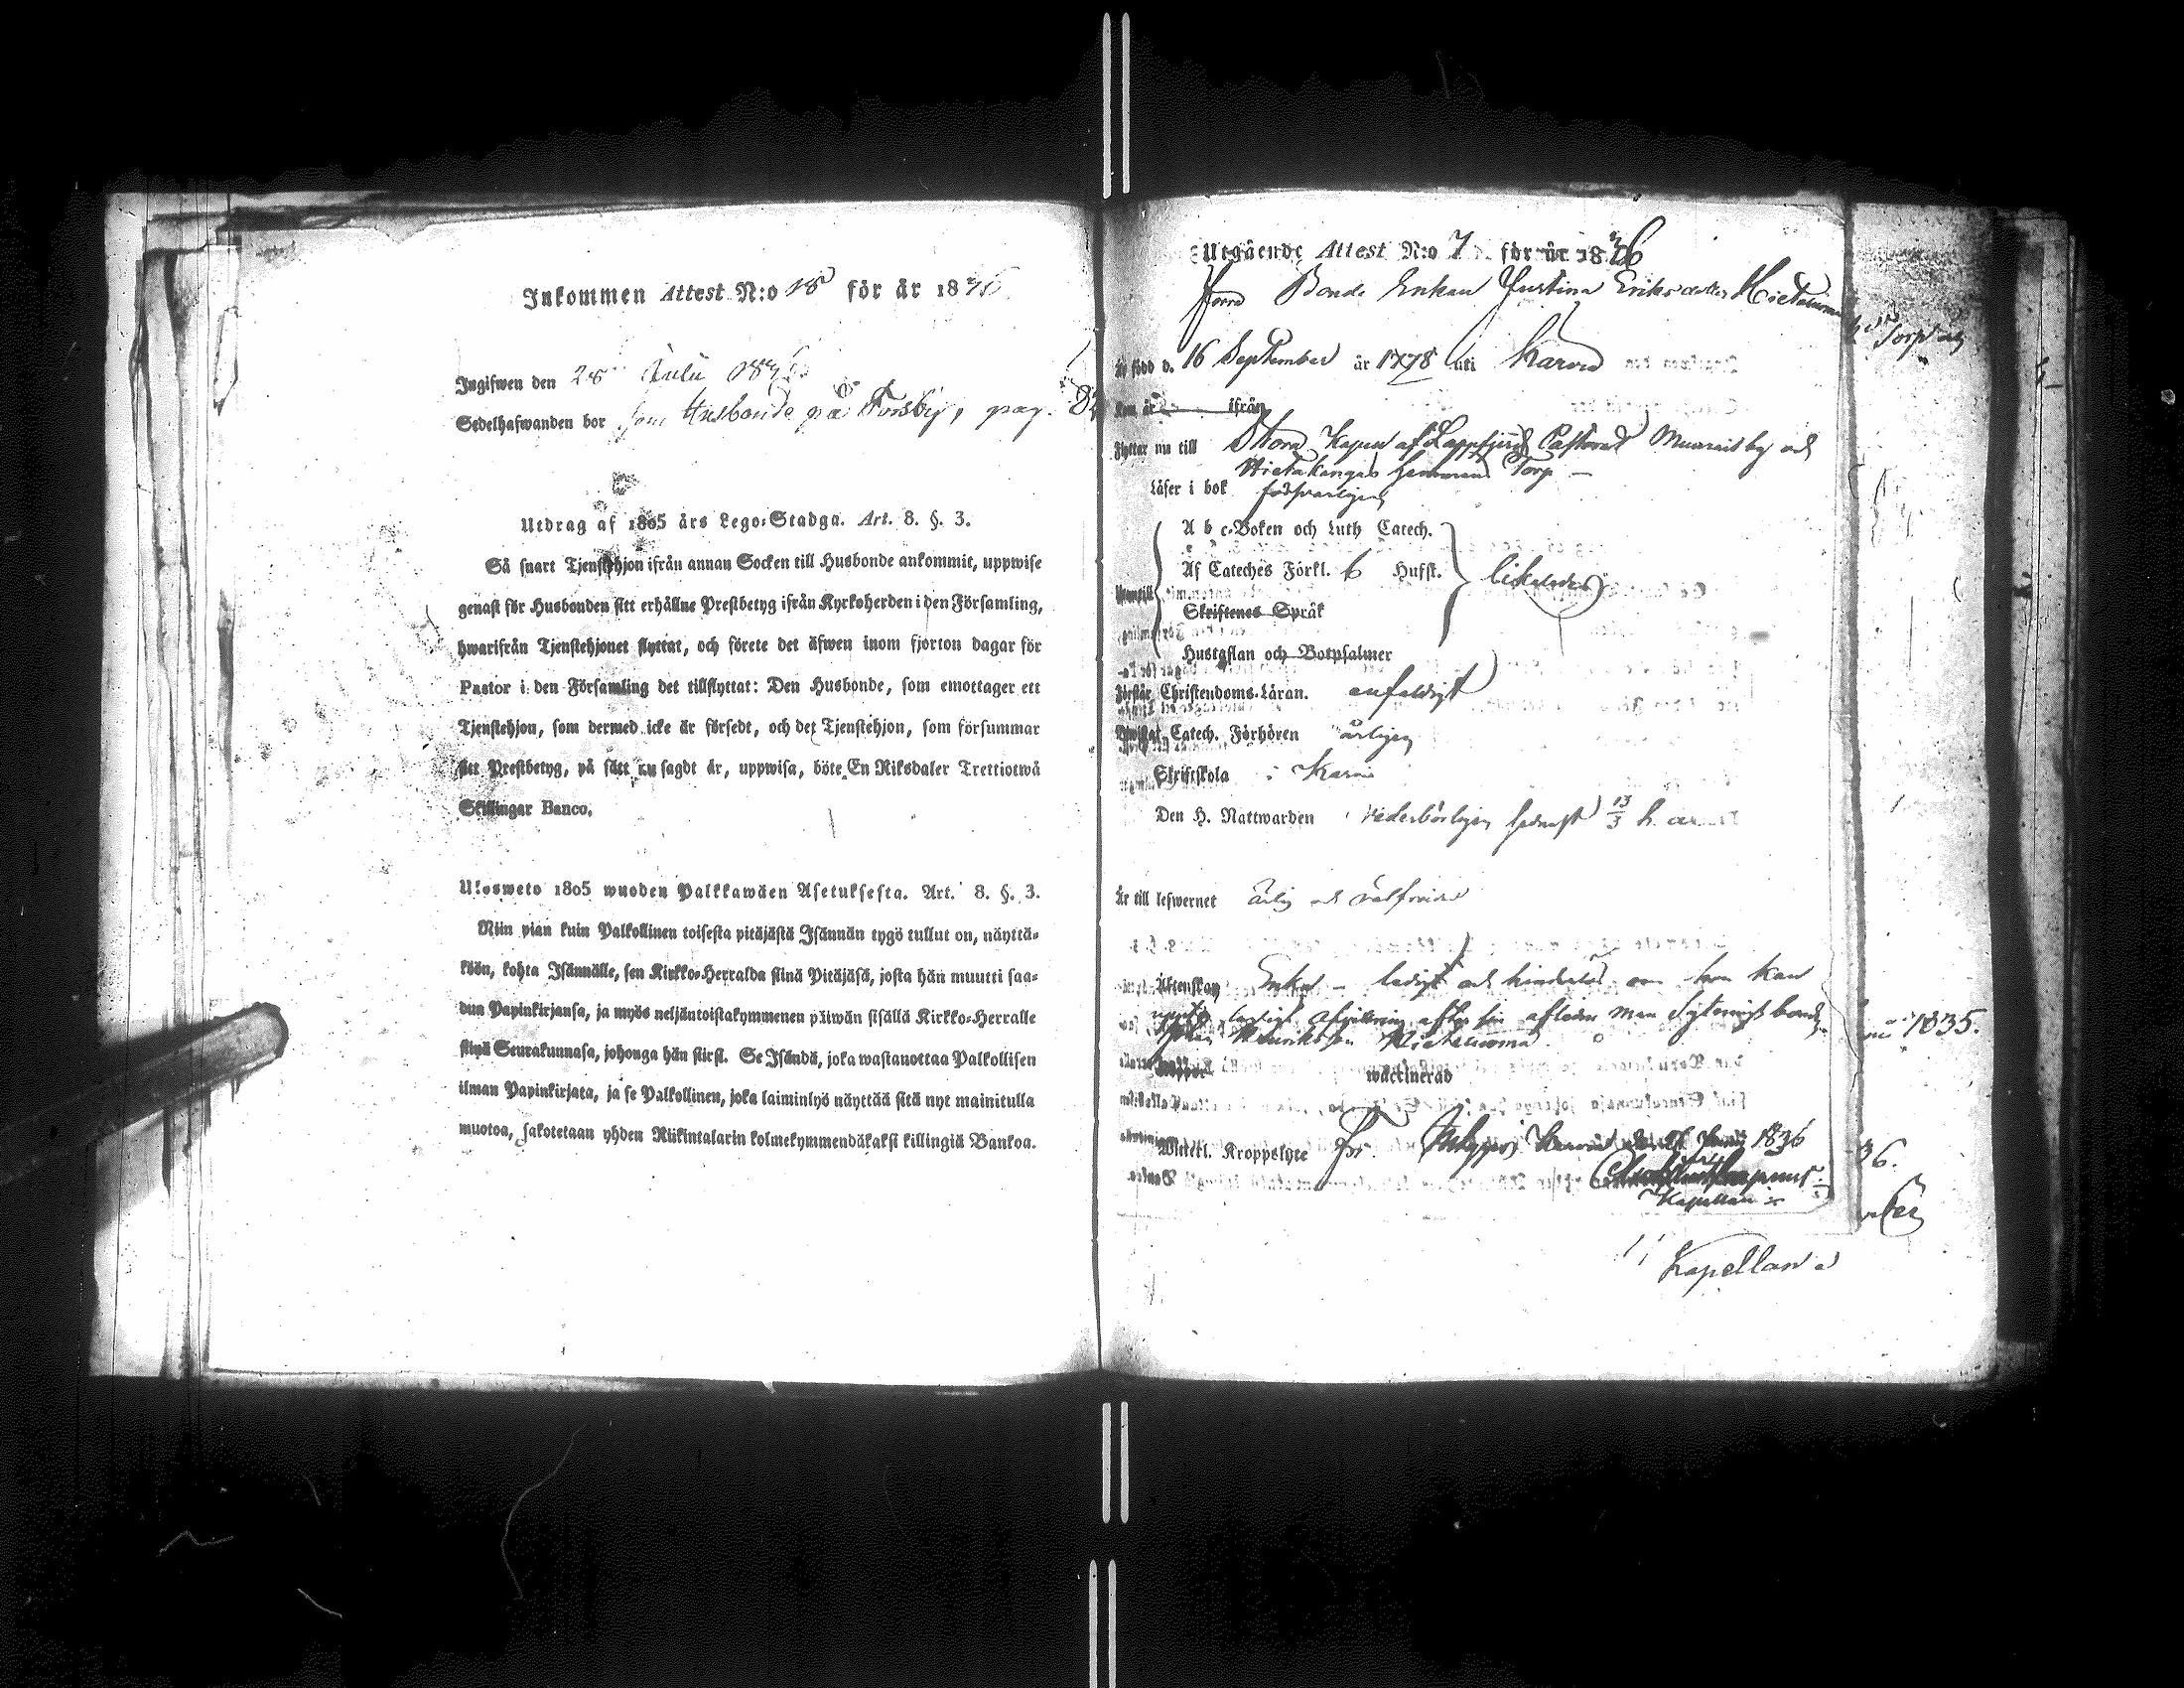 Inkommen Attest N:o 18 för år 1836
Ingifwen den 28 Julii 1836
Sedelhafwanden bor som Husbonde på Forsby, pag. 82
Utdrag af 1805 års Lego-Stadga. Art. 8. §. 3.
Så snart Tjenstehjon ifrån annan Socken till Husbonde ankommit, uppwise
genast för Husbonden sitt erhållne Prestbetyg ifrån Kyrkoherden i den Församling,
hwarifrån Tjenstehjonet flyttat, och förete det äfwen inom fjorton dagar för
Pastor i den Församling det tillflyttat: Den Husbonde, som emottager ett
Tjenstehjon, som dermed icke är försedt, och det Tjenstehjon, som försummar
sitt Prestbetyg, på sätt nu sagdt är, uppwisa, böte En Riksdaler Trettiotwå
Skillingar Banco.
Ulosweto 1805 wuoden Palkkawäen Asetuksesta. Art. 8. §. 3.
Niin pian kuin Palkollinen toisesta pitäjästä Isännän tygö tullut on, näyttä-
köön, kohta Isännälle, sen Kirkko-Herralda siinä Pitäjäsä, josta hän muutti saa-
dun Papinkirjansa, ja myös neljäntoistakymmenen päiwän sisällä Kirkko-Herralle
siinä Seurakunnasa, johonga hän siirsi. Se Isändä, joka wastanottaa Palkollisen
ilman Papinkirjata, ja se Palkollinen, joka laiminlyö näyttää sitä nyt mainitulla
muotoa, sakotetaan yhden Riikintalarin kolmekymmendäkaksi killingiä Bankoa.
Utgående Attest N:o 7 för år 1836
Förra Bonde Enkan Justina Eriksdotter Hietaluoma
Är född d. 16 September år 1778 uti Karvia
Kom år ifrån
Flyttar nu till Stora Kapell af Lappfjerds Pastorat Muurais by och
Hietakangas hemmans Torp
Läser i bok försvarligen
A b c-Boken och Luth Catech.
Af Cateches Förkl. 6 Hufst. likaledes
Utantill
Skriftenes Språk
Hustaflan och Botpsalmer
Förstår Christendoms-Läran. enfaldigt
Bewistat Catech. Förhören årligen
Skriftskola i Karvia
Den H. Nattwarden vederbörligen senast 13/3 h. a.
Är till lefwernet ärlig och välfrejdad
Äktenskap Enka - ledigt och hinderlös om hon kan
afvittring efter sin aflidne man Sytningsbonden
Hietaluoma
Koppor waccinerad
Widerl. Kroppslyte fri. Karvia 1836
Kapellan
Torp
1835.
36.
Kapellan